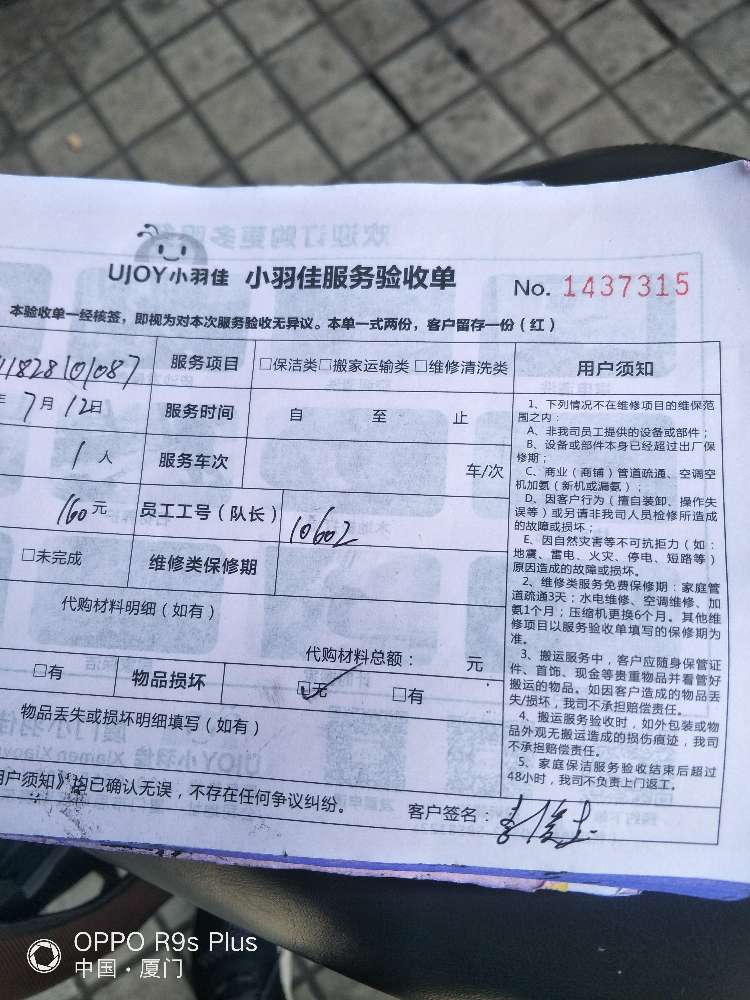 UJOY小羽佳 小羽佳服务验收单 No. 1437315
本验收单一经核签，即视为对本次服务验收无异议。本单一式两份，客户留存一份（红）
1828101087 服务项目 □保洁类□搬家运输类 □维修清洗类
7月12日 服务时间 自 至 止
1人 服务车次 车/次
160元 员工工号（队长） 10602
□未完成 维修类保修期
代购材料明细（如有）
代购材料总额： 元
□有 物品损坏 ☑无 □有
物品丢失或损坏明细填写（如有）
用户须知》均已确认无误，不存在任何争议纠纷。 客户签名：
用户须知
1、下列情况不在维修项目的维保范
围之内：
A、非我司员工提供的设备或部件；
B、设备或部件本身已经超过出厂保
修期；
C、商业（商铺）管道疏通、空调空
机加氨（新机或漏氨）；
D、因客户行为（擅自装卸、操作失
误等）或另请非我司人员检修所造成
的故障或损坏；
E、因自然灾害等不可抗拒力（如：
地震、雷电、火灾、停电、短路等）
原因造成的故障或损坏。
2、维修类服务免费保修期：家庭管
道疏通3天；水电维修、空调维修、加
氨1个月；压缩机更换6个月。其他维
修项目以服务验收单填写的保修期为
准。
3、搬运服务中，客户应随身保管证
件、首饰、现金等贵重物品并看管好
搬运的物品。如因客户造成的物品丢
失/损坏，我司不承担赔偿责任。
4、搬运服务验收时，如外包装或物
品外观无搬运造成的损伤痕迹，我司
不承担赔偿责任。
5、家庭保洁服务验收结束后超过
48小时，我司不负责上门返工。
OPPO R9s Plus
中国·厦门